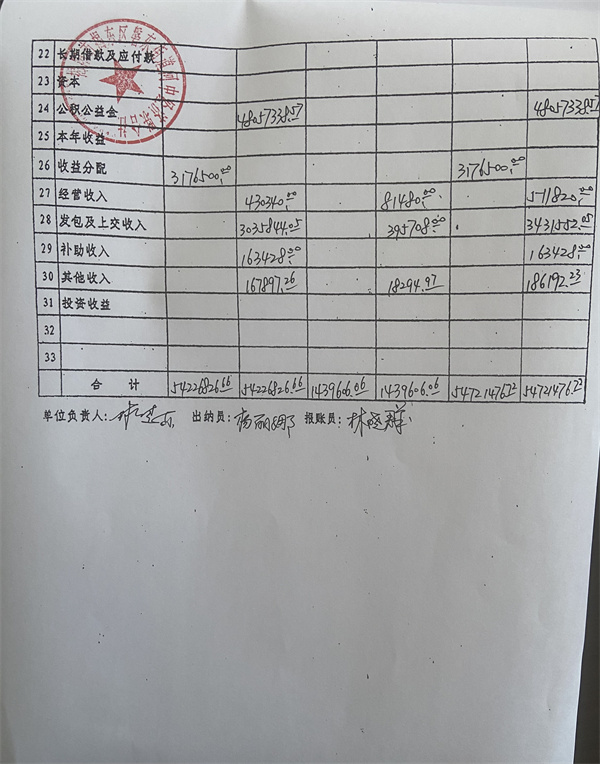 22 长期借款及应付款
23 资本
24 公积公益金 48057338.57 48057338.57
25 本年收益
26 收益分配 3176500.00 3176500.00
27 经营收入 430340.00 81480.00 511820.00
28 发包及上交收入 3035844.05 395708.00 3431552.05
29 补助收入 163428.00 163428.00
30 其他收入 167897.26 18294.97 186192.23
31 投资收益
32
33
合计 54226826.66 54226826.66 1439606.06 1439606.06 54721476.72 54721476.72
单位负责人: 出纳员:杨丽娜 报账员: